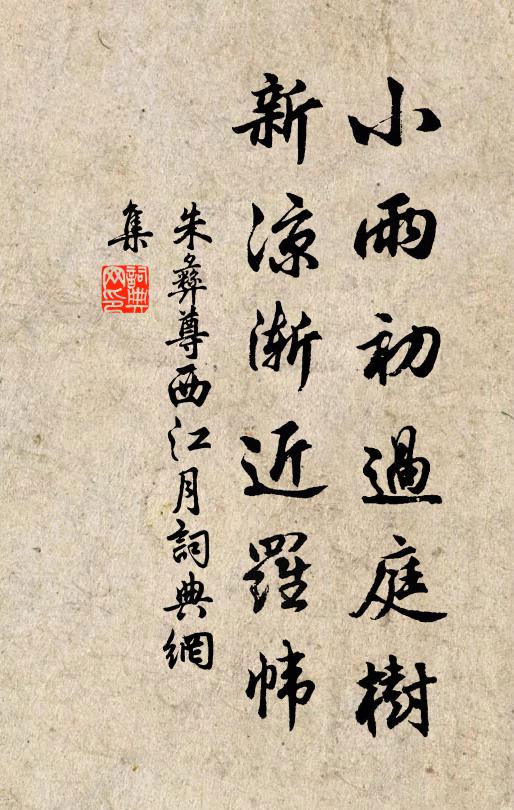 小雨初過庭樹
新涼漸近羅幃
朱彝尊西江月詞典網
集
詞典網印